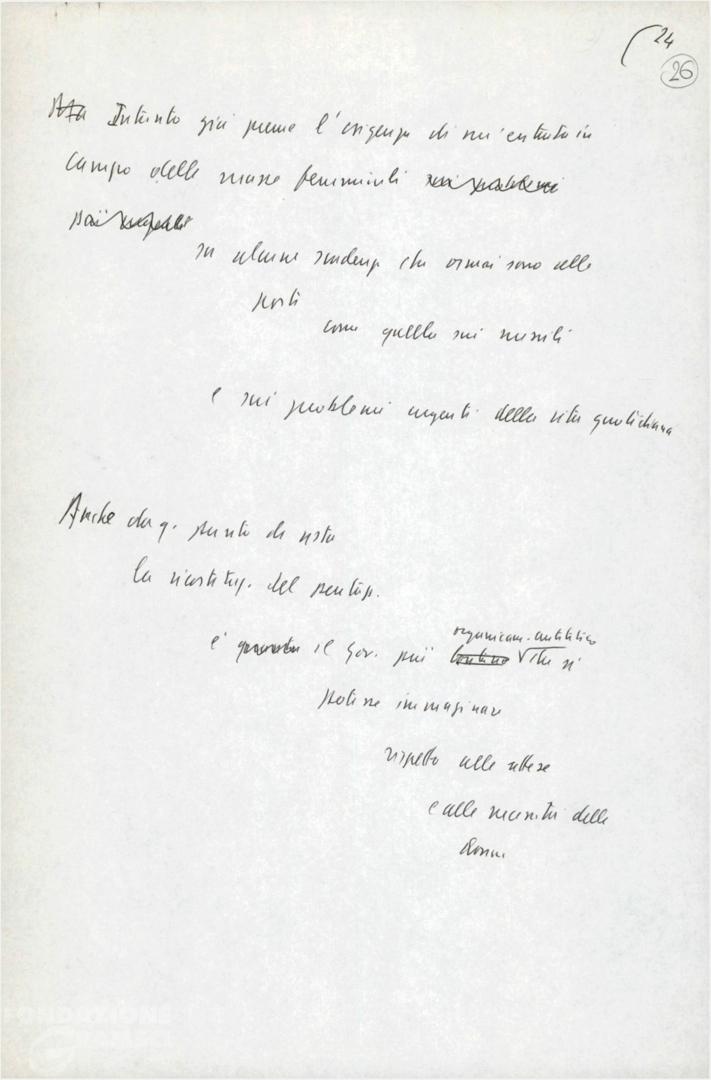 24
26
Ma Intanto già preme l'esigenza di un'entrata in
campo delle masse femminili sui problemi
più urgenti
su alcune scadenze che ormai sono alle
porti
come quella sui missili
e sui problemi urgenti della vita quotidiana
Anche da q. punto di vista
la ricostituz. del pentap.
è il gov. più organicam. antitetico che si
potesse immaginare
rispetto alle attese
e alle necessità delle
donne
FONDAZIONE